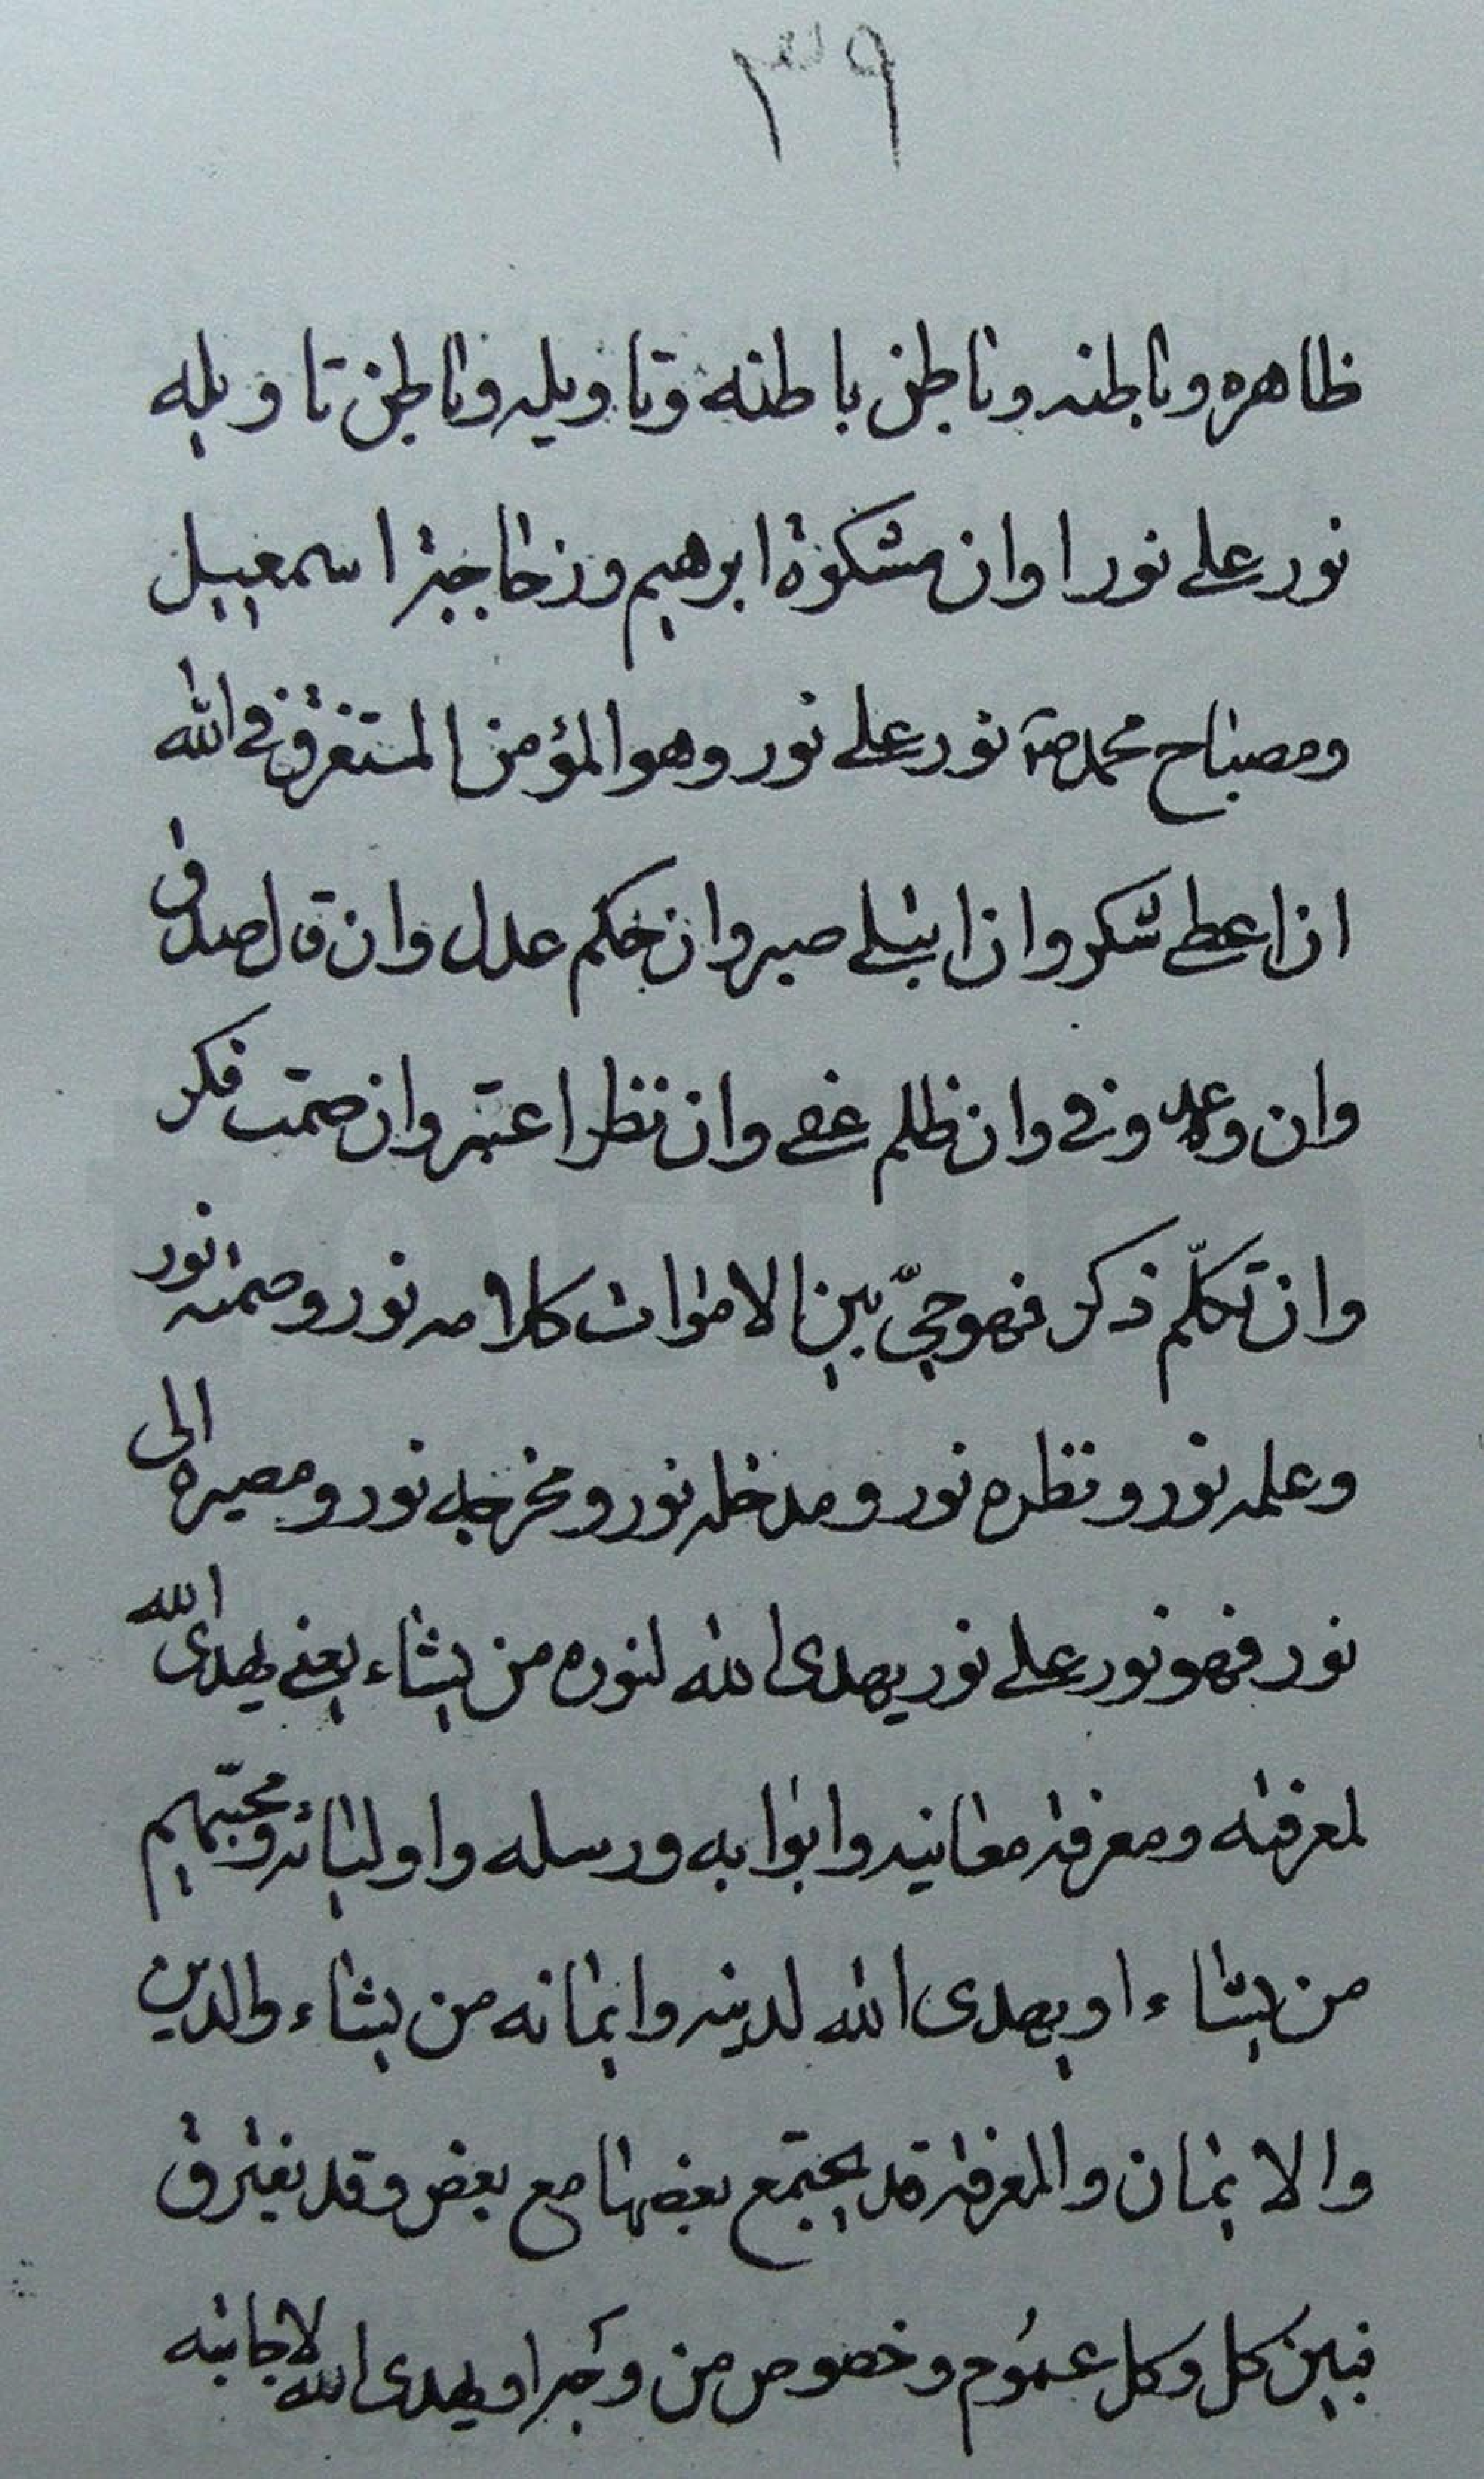 ٣٩
ظاهره وباطنه وباطن باطنه وتاويله وباطن تاويله
نور على نور اوان مشكوة ابرهيم وزجاجة اسمعيل
ومصباح محمد صم نور على نور وهو المؤمن المستغرق في الله
اذا اعطى شكر واذا ابتلى صبر وان حكم عدل وان قال صدق
وان وعد وفى وان ظلم غفر وان نظر اعتبر وان صمت فكر
وان تكلّم ذكر فهو حيّ بين الاموات كلامه نور وصمته نور
وعلمه نور ونظره نور ومدخله نور ومخرجه نور ومصيره الى
نور فهو نور على نور يهدى الله لنوره من يشاء يعنى يهدى الله
لمعرفته ومعرفة معانيه وابوابه ورسله واوليائه ومحبّيهم
من يشاء او يهدى الله لدينه وايمانه من يشاء والدين
والايمان والمعرفة قد يجتمع بعضها مع بعض وقد يفترق
فبين كل وكل عموم وخصوص من وجه او يهدى الله لاجابته